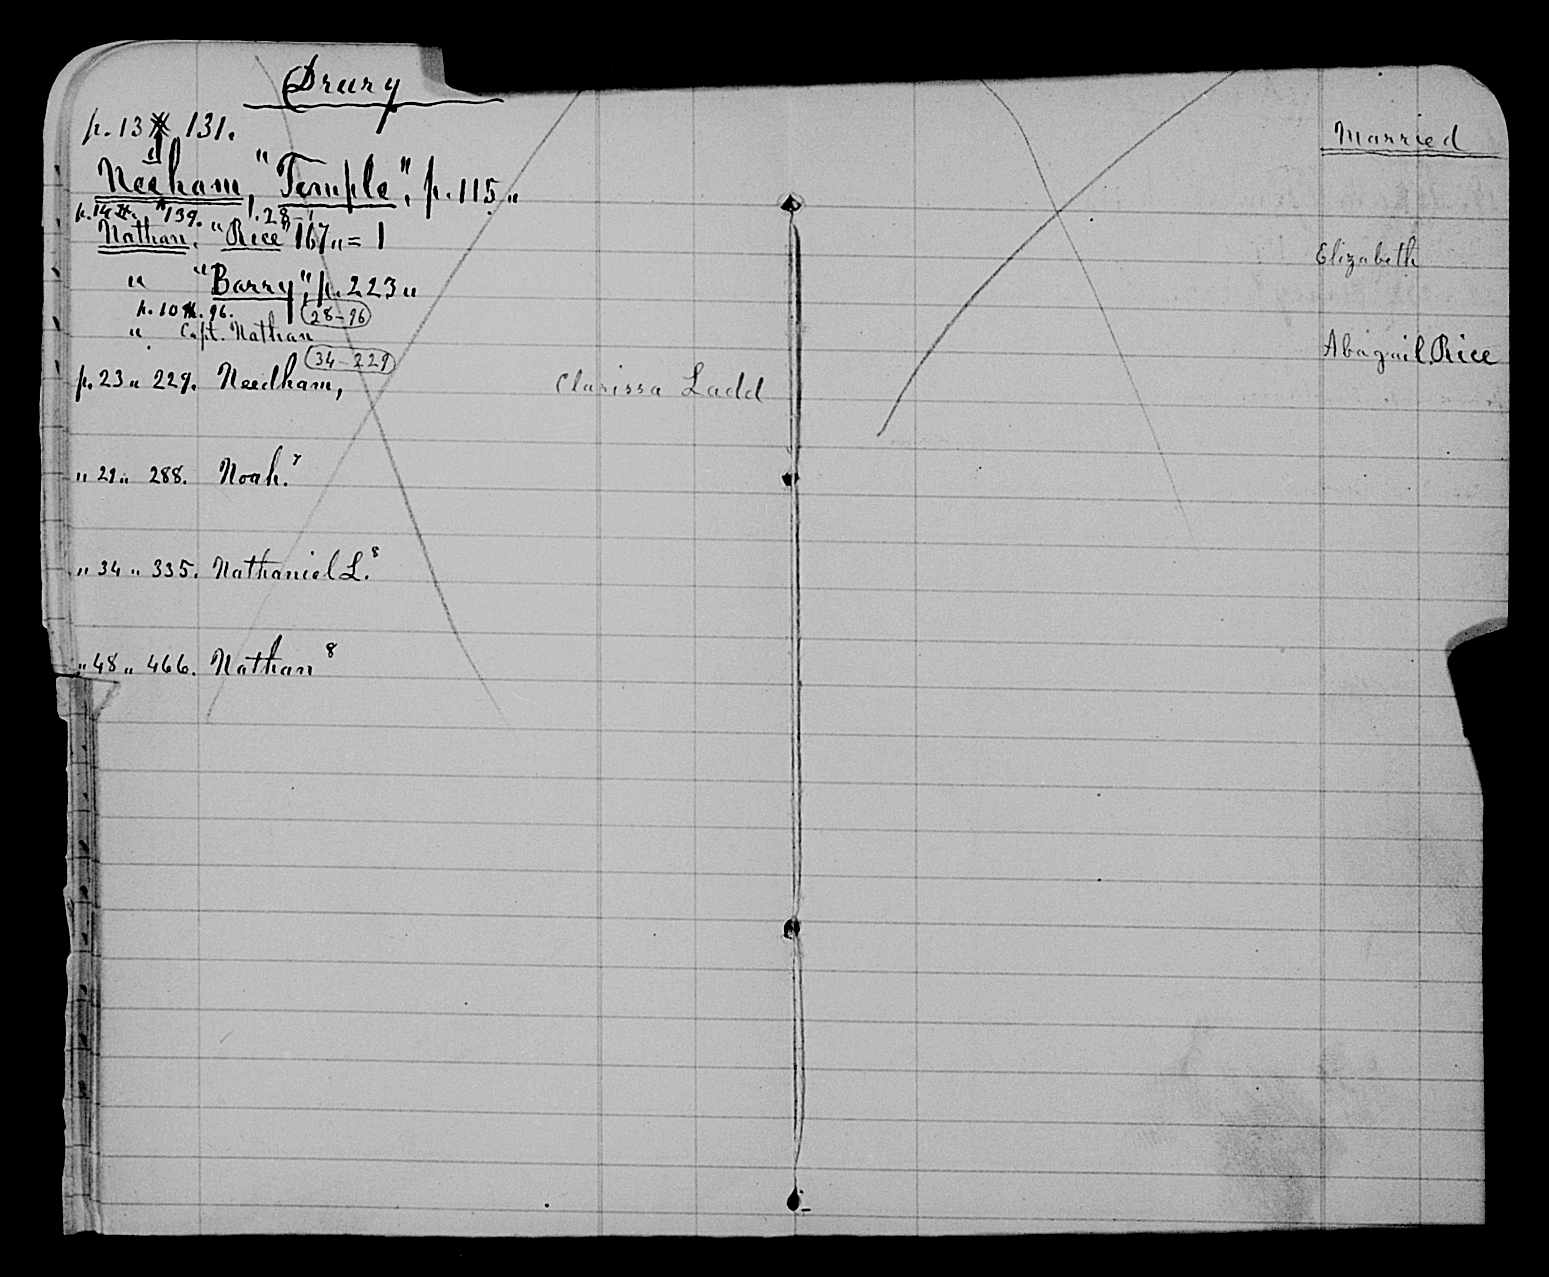 Drury
p. 13 131.
Married
d
Neeham, "Temple", p. 115 "
p. 14 139. 1.28-1
Nathan. "Rice" 167 " = 1
Elizabeth
" "Barry", p. 223 "
p. 10 96. 28-96
" Capt. Nathan
Abagail Rice
34-229
p. 23 " 229. Needham, Clarissa Ladd
" 29 " 288. Noah.7
" 34 " 335. Nathaniel L.8
" 48 " 466. Nathan8